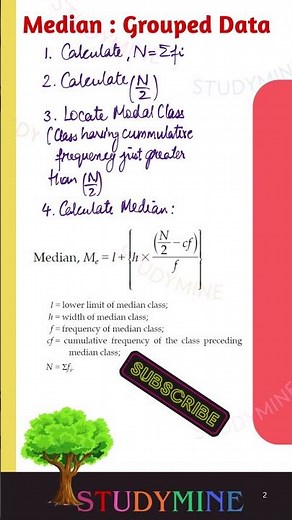 Median : Grouped Data
1. Calculate, N = Σfi
2. Calculate (N/2)
3. Locate Modal Class
(Class having cummulative
frequency just greater
than (N/2)
4. Calculate Median :
Median, Mₑ = l + {h × (N/2 − cf)/f}
l = lower limit of median class;
h = width of median class;
f = frequency of median class;
cf = cumulative frequency of the class preceding
median class;
N = Σfᵢ.
SUBSCRIBE
STUDYMINE
2
STUDYMINE
STUDYMINE